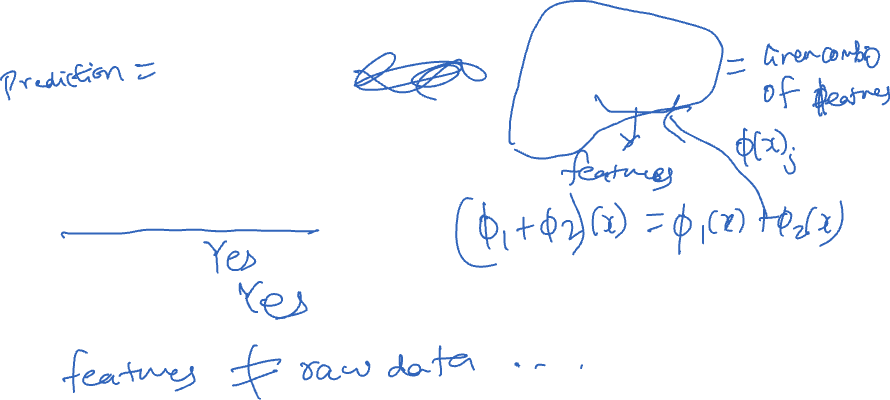 Prediction =
= linear combo
of features
φ(x)j
features
(φ1 + φ2)(x) = φ1(x) + φ2(x)
Yes
Yes
features ≠ raw data ....